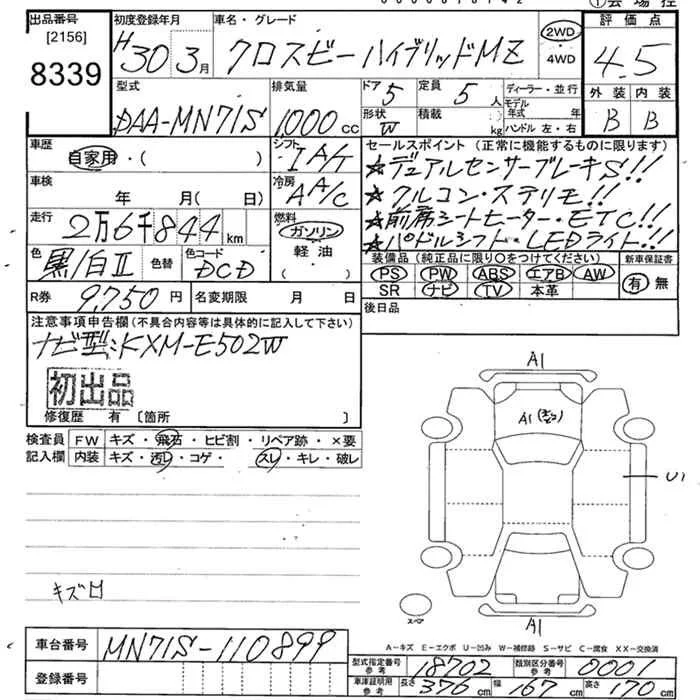 出品番号 [2156] 8339
初度登録年月 H30 3月
車名・グレード クロスビー ハイブリッドMZ
2WD
4WD
評価点 4.5
外装 内装
B B
型式 DAA-MN71S
排気量 1,000 cc
ドア 5 定員 5 人
形状 W 積載 ( ) kg
ディーラー・並行
モデル年式 年
ハンドル 左・右
車歴 自家用・( )
シフト IA/T
車検 年 月(日)
冷房 AA/C
走行 2万6千844 km
燃料 ガソリン
軽油
色 黒/白Ⅱ 色替 色コード DCD
R券 9,750円 名変期限 月 日
セールスポイント (正常に機能するものに限ります)
★デュアルセンサーブレーキS!!
★クルコン・ステリモ!!
★前席シートヒーター・ETC!!
★パドルシフト・LEDライト!!
装備品 (純正品に限り○をつけてください) 新車保証書
PS PW ABS エアB AW 有 無
SR ナビ TV 本革
後日品
注意事項申告欄 (不具合内容等は具体的に記入して下さい)
ナビ型:KXM-E502W
初出品
修復歴 有 〔箇所 〕
検査員記入欄
FW キズ・飛石・ヒビ割・リペア跡・×要
内装 キズ・汚レ・コゲ・ スレ・キレ・破レ
A1
A1
U1
A1
スペア
キズ
A-キズ E-エクボ U-凹み W-補修跡 S-サビ C-腐食 XX-交換済
車台番号 MN71S-110899
登録番号
型式指定番号 参考 18702 類別区分番号 参考 0001
車庫証明用 参考 長さ 376 cm 幅 167 cm 高さ 170 cm